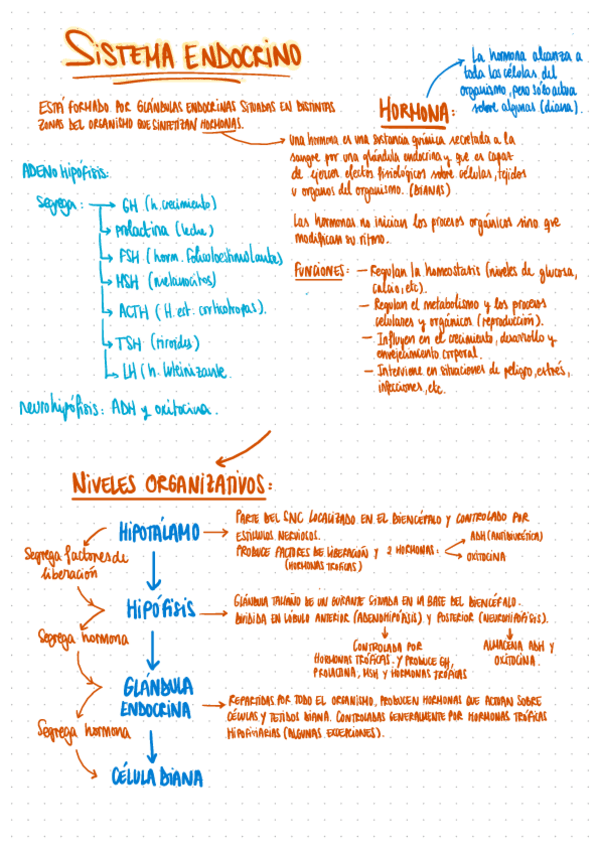 SISTEMA ENDOCRINO
ESTÁ FORMADO POR GLÁNDULAS ENDOCRINAS SITUADAS EN DISTINTAS
ZONAS DEL ORGANISMO QUE SINTETIZAN HORMONAS.
HORMONA:
La hormona alcanza a
toda las células del
organismo, pero sólo actua
sobre algunas (diana).
una hormona es una sustancia química secretada a la
sangre por una glándula endocrina y que es capaz
de ejercer efectos fisiológicos sobre células, tejidos
u organos del organismo. (DIANAS)
Las hormonas no inician los procesos orgánicos sino que
modifican su ritmo.
FUNCIONES:
— Regulan la homeostasis (niveles de glucosa,
calcio, etc).
— Regulan el metabolismo y los procesos
celulares y orgánicos (reproducción).
— Influyen en el crecimiento, desarrollo y
envejecimiento corporal.
— Interviene en situaciones de peligro, estrés,
infecciones, etc.
ADENOhipófisis:
Segrega:
GH (h. crecimiento)
prolactina (leche)
FSH (horm. foliculoestimulante)
MSH (melanocitos)
ACTH (H. est. corticotropas).
TSH (tiroides)
LH (h. luteinizante.
neurohipófisis: ADH y oxitocina.
NIVELES ORGANIZATIVOS:
HIPOTÁLAMO
PARTE DEL SNC LOCALIZADO EN EL DIENCÉFALO Y CONTROLADO POR
ESTÍMULOS NERVIOSOS.
PRODUCE FACTORES DE LIBERACIÓN Y 2 HORMONAS:
(HORMONAS TRÓFICAS)
ADH (ANTIDIURÉTICA)
OXITOCINA
Segrega factores de
liberación
HIPÓFISIS
GLÁNDULA TAMAÑO DE UN GUISANTE SITUADA EN LA BASE DEL DIENCÉFALO.
DIVIDIDA EN LÓBULO ANTERIOR (ADENOHIPÓFISIS) Y POSTERIOR (NEUROHIPÓFISIS).
CONTROLADA POR
HORMONAS TRÓFICAS. Y PRODUCE GH,
PROLACTINA, MSH Y HORMONAS TRÓFICAS
ALMACENA ADH Y
OXITOCINA.
Segrega hormona
GLÁNDULA
ENDOCRINA
REPARTIDAS POR TODO EL ORGANISMO, PRODUCEN HORMONAS QUE ACTUAN SOBRE
CÉLULAS Y TEJIDOS DIANA. CONTROLADAS GENERALMENTE POR HORMONAS TRÓFICAS
HIPOFISIARIAS (ALGUNAS EXCEPCIONES).
Segrega hormona
CÉLULA DIANA